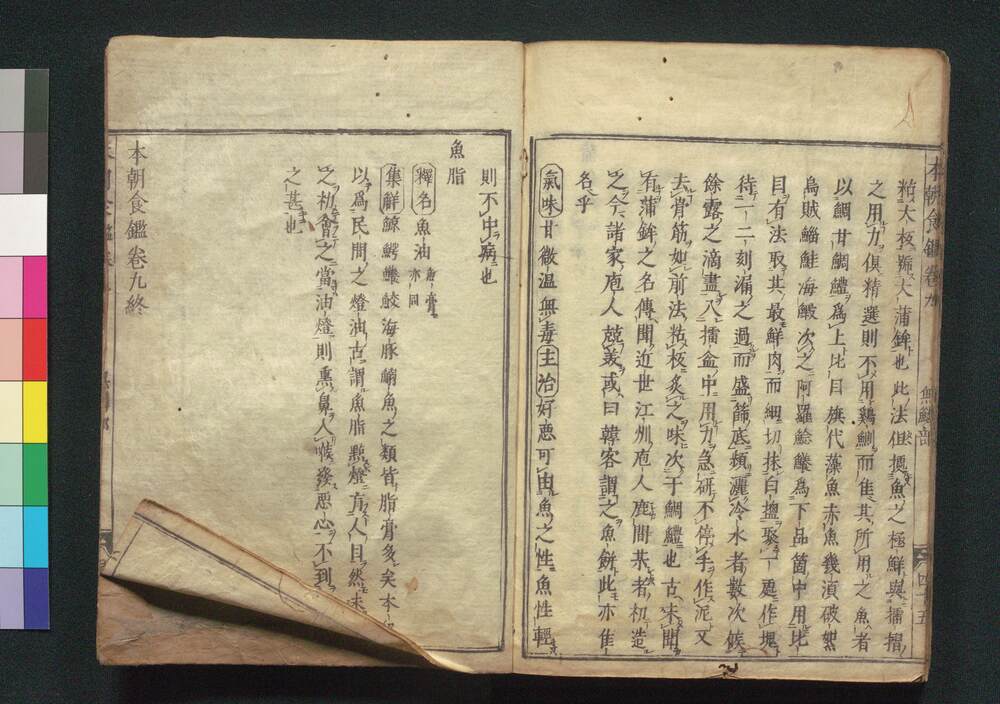 本朝食鑑卷九 無鱗部 四十五
粘大板號大蒲鉾也此法但擇魚之極鮮與擂搨
之用力俱精選則不用鷄鰂而隹其所用之魚者
以鯛甘鯛鱧爲上比目旗代藻魚赤魚幾湏破
烏賊鯔鮭海鰕次之阿羅鯰鱶為下品箇中用比
目有法取其最鮮肉而細切抹白鹽聚一處作塊
待一二刻漏之過而盛篩底頻灑冷水者數次候
餘露之滴盡入擂盆中用力急研不停手作泥又
去骨筋如前法粘板炙之味次于鯛鱧也古未聞
有蒲鉾之名傳聞近世江州庖人鹿間某者初造
之今諸家庖人競美或曰韓客謂之魚餅此亦隹
名乎
氣味甘微温無毒主治好惡可由魚之性魚性輕
則不中病也
魚脂
釋名魚油魚膏亦同
集觧鯨鰐鱶鮫海豚鰯魚之類皆脂膏多矣本
以爲民間之燈油古謂魚脂㸃燈盲人目然未
之初會之當油燈則熏鼻人喉後惡心不到
之甚也
本朝食鑑卷九終